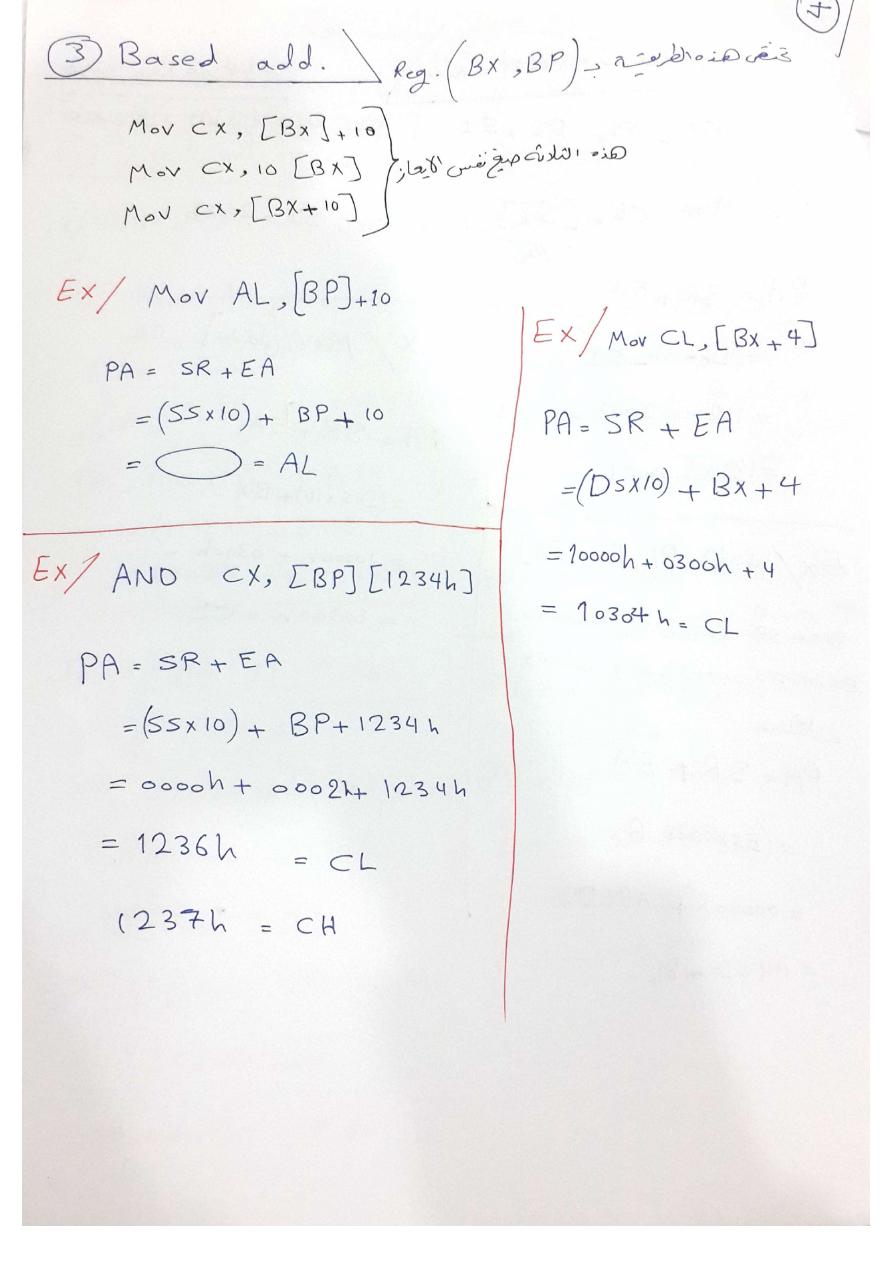 3 Based add. Reg. (BX, BP) تختص هذه الطريقة بـ
Mov CX, [BX]+10
Mov CX, 10 [BX]
Mov CX, [BX+10]
هذه الثلاثة صيغ نفس الايعاز
Ex/ Mov AL, [BP]+10
PA = SR + EA
=(SS x 10) + BP + 10
= = AL
Ex/ AND CX, [BP] [1234h]
PA = SR + EA
=(SS x 10) + BP + 1234h
= 0000h + 0002h + 1234h
= 1236h = CL
1237h = CH
Ex/ Mov CL, [BX + 4]
PA = SR + EA
=(DS x 10) + BX + 4
= 10000h + 0300h + 4
= 10304h = CL